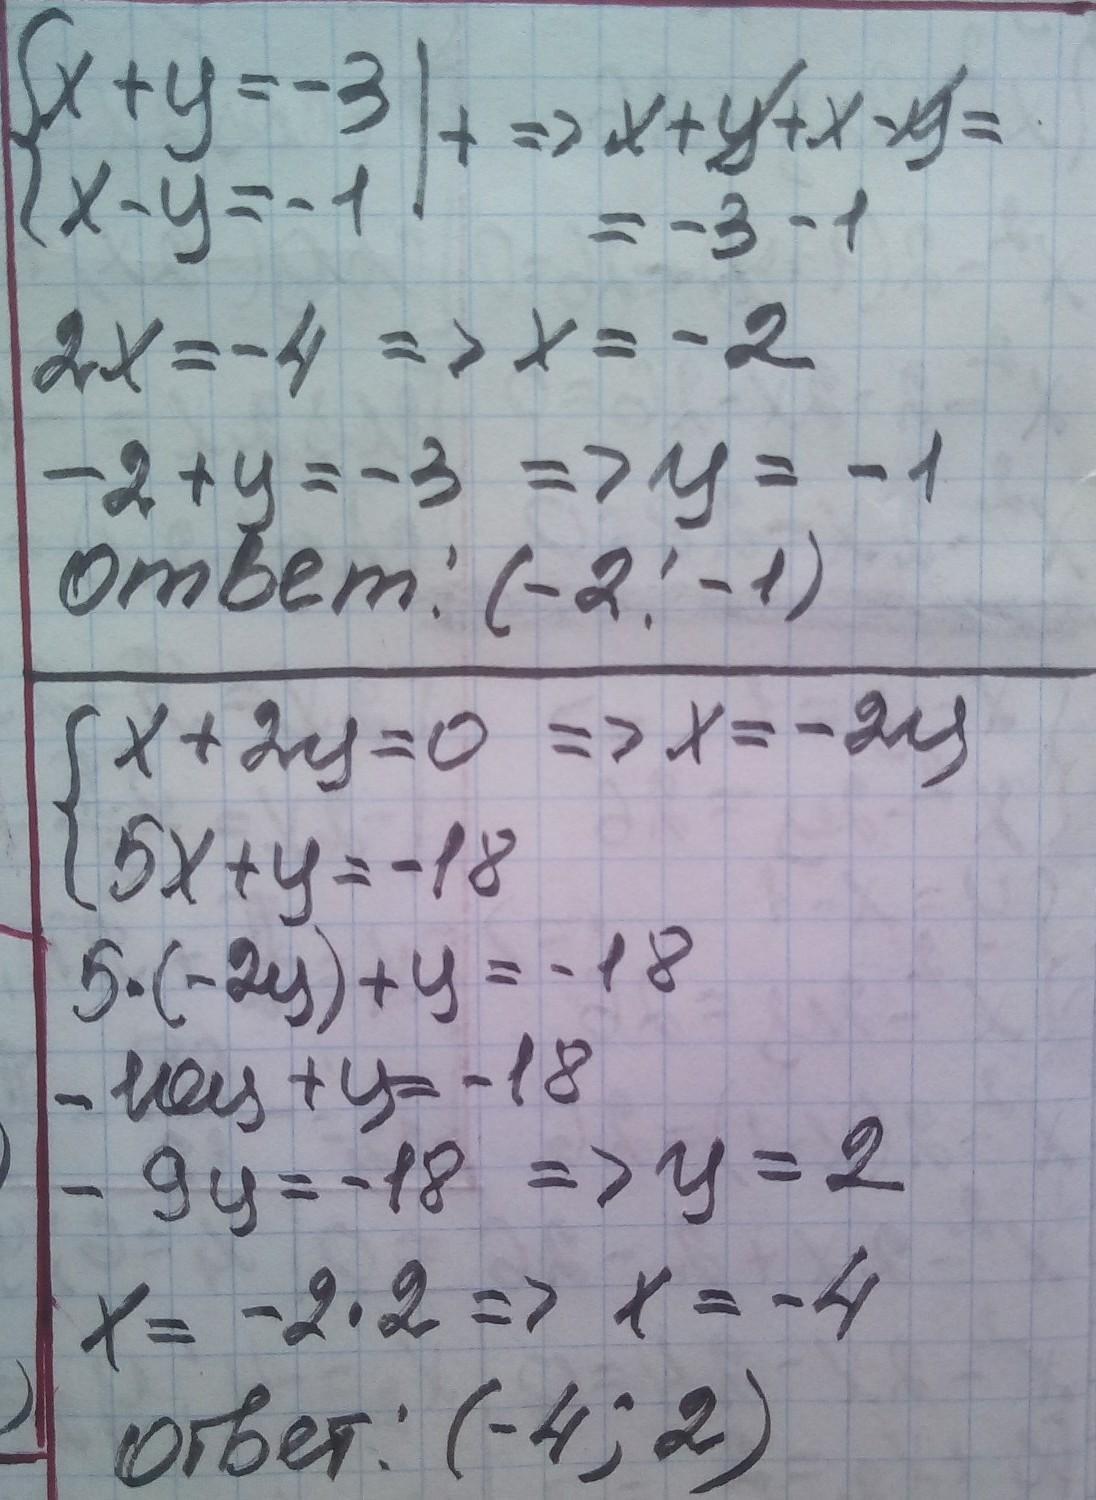 {x+y=-3 |+ => x+y+x-y=
{x-y=-1 | = -3-1
2x=-4 => x=-2
-2+y=-3 => y=-1
ответ: (-2; -1)
{x+2y=0 => x=-2y
{5x+y=-18
5·(-2y)+y=-18
-10y+y=-18
-9y=-18 => y=2
x= -2·2 => x=-4
ответ: (-4; 2)